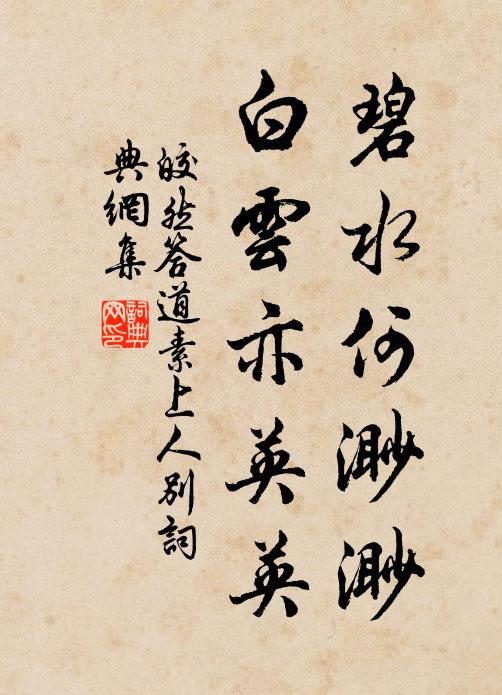 碧水何渺渺
白雲亦英英
皎然答道素上人別詞
典網集
詞典
网印